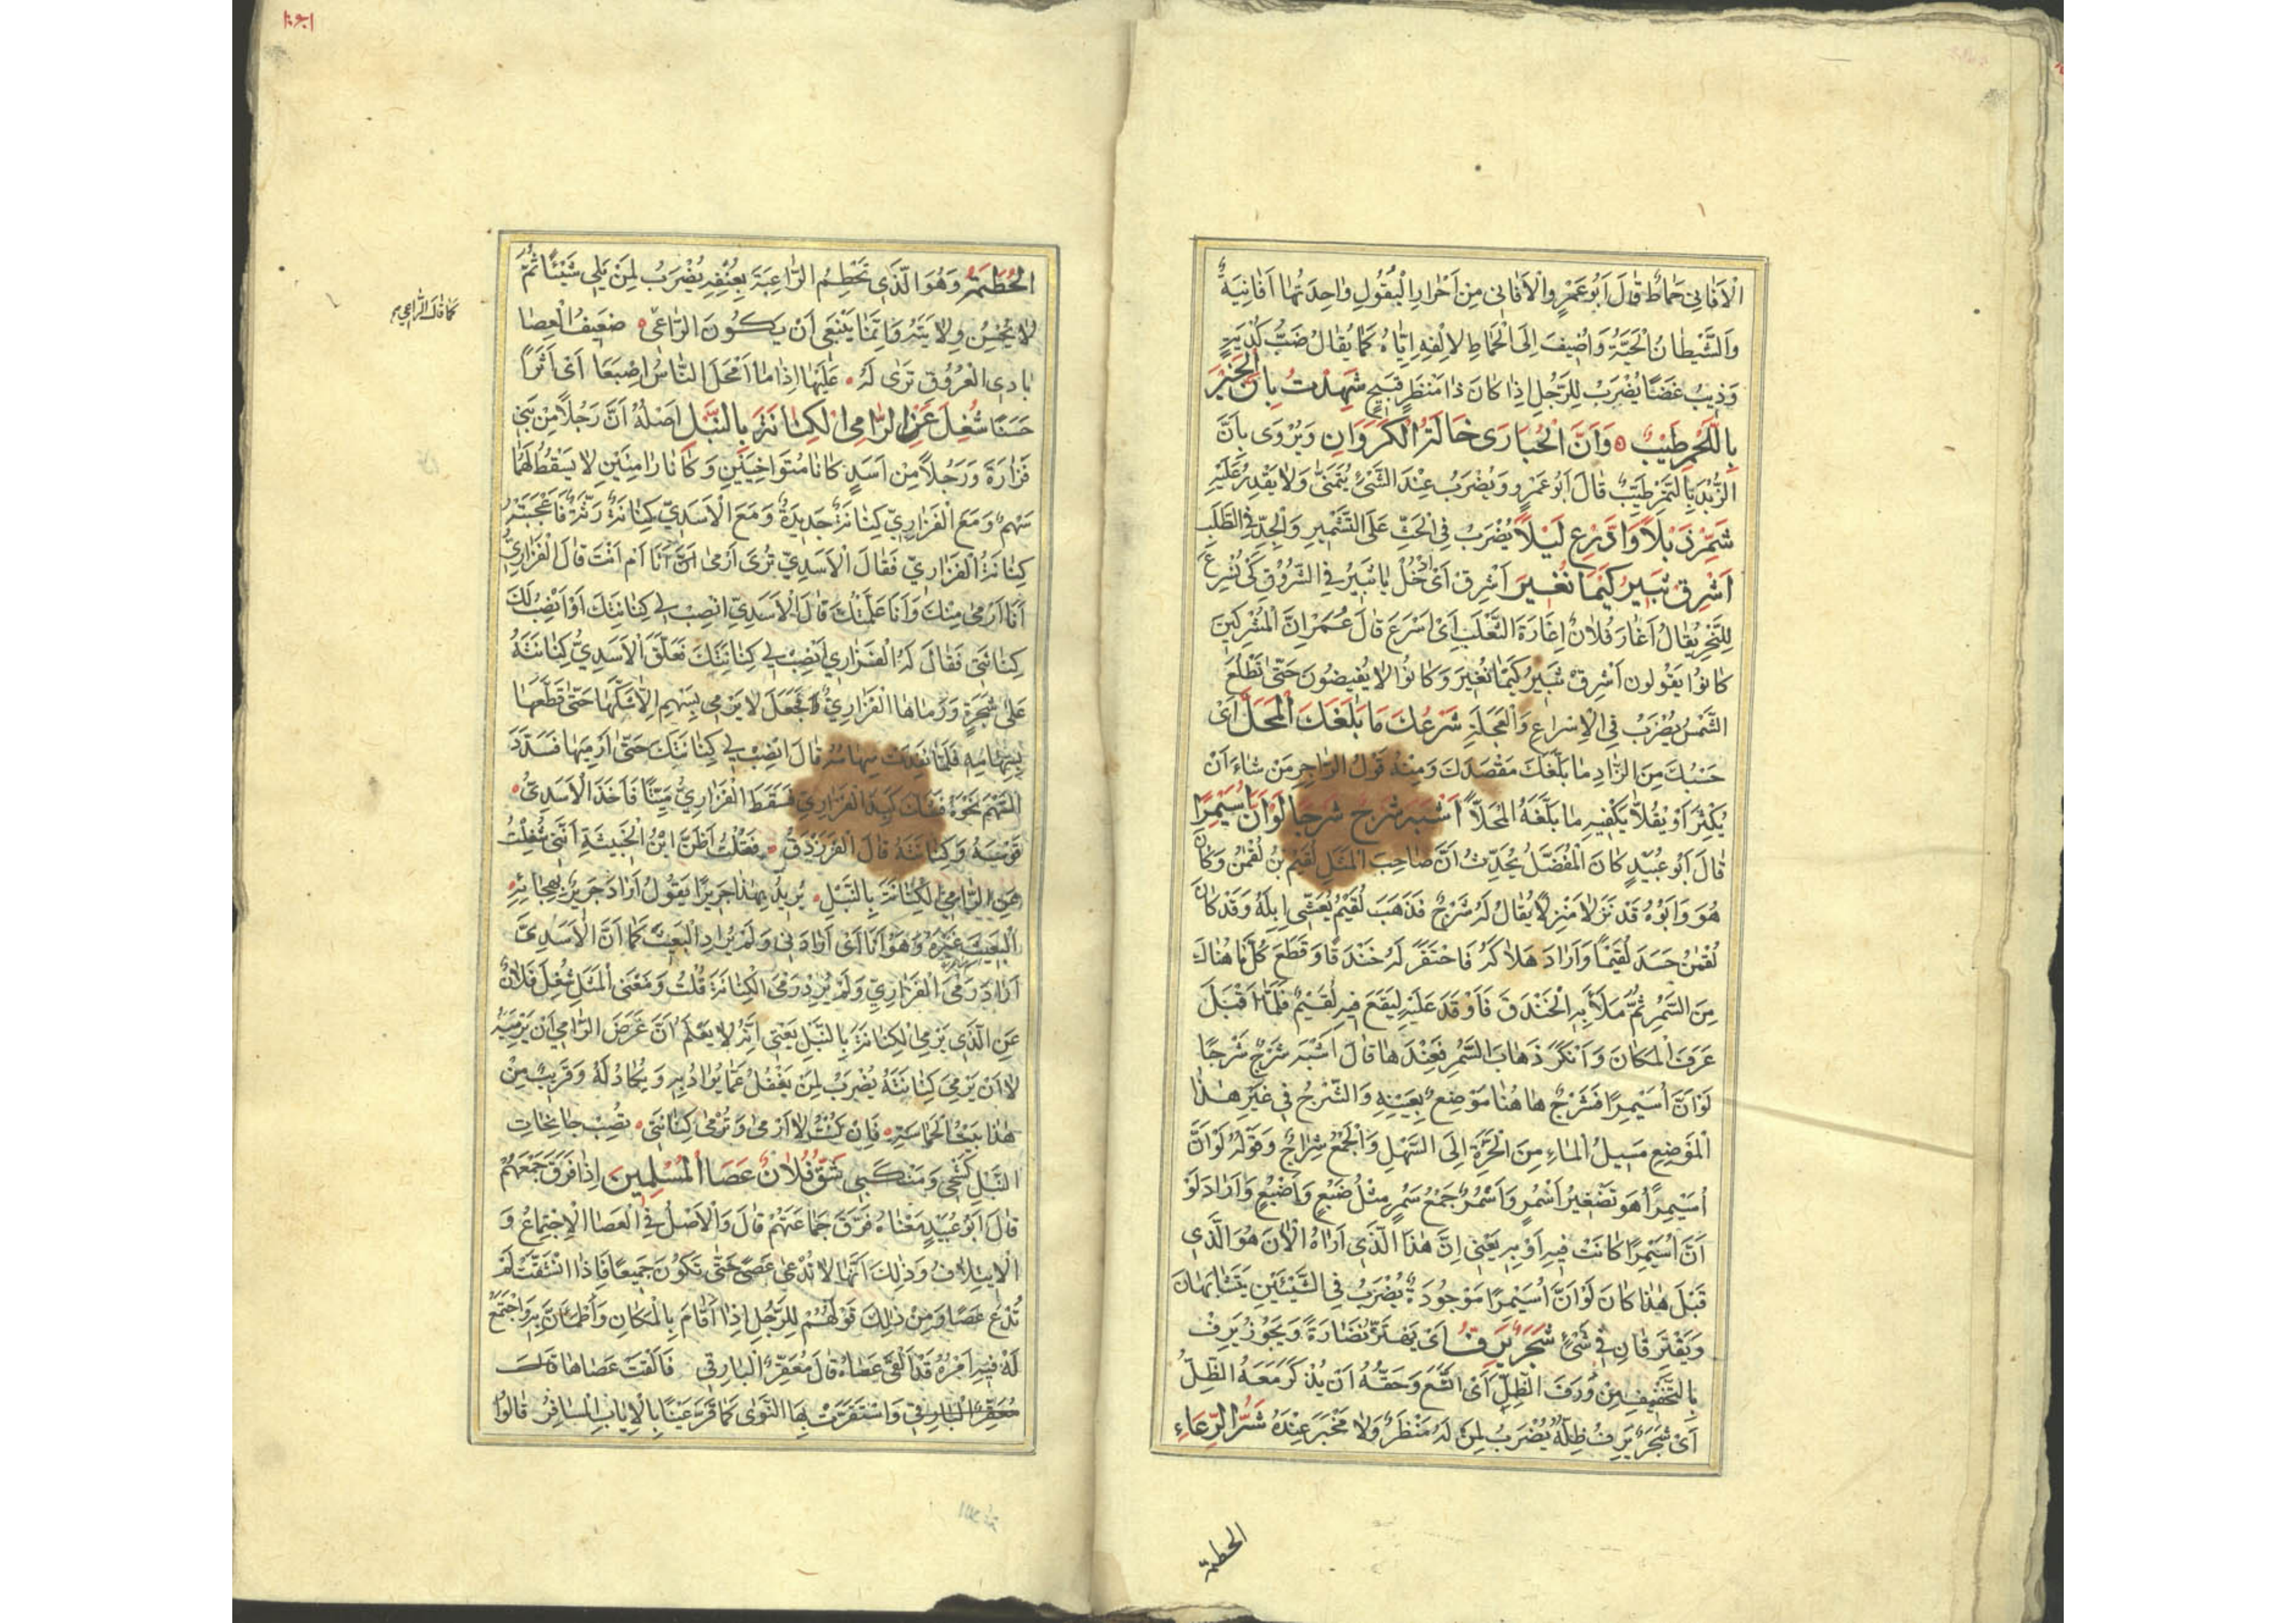 الْاَفَانِي حَمَاطٌ قَالَ اَبُو عَمْرٍو وَالْاَفَانِي مِنْ اَحْرَارِ الْبُقُولِ وَاحِدَتُهَا اَفَانِيَةٌ
وَالشَّيْطَانُ الْحَيَّةُ وَاُضِيفَ اِلَى الْحَمَاطِ لِاِلْفِهِ اِيَّاهُ كَمَا يُقَالُ ضَبُّ كُدْيَةٍ
وَذِيبُ غَضًا يُضْرَبُ لِلرَّجُلِ اِذَا كَانَ ذَا مَنْظَرٍ قَبِيحٍ شَهِدْتُ بِاَنَّ الْخُبْزَ
بِاللَّحْمِ طَيِّبٌ وَاَنَّ الْحُبَارَى خَالَةُ الْكَرَوَانِ وَيُرْوَى بِاَنَّ
الزُّبْدَ بِالتَّمْرِ طَيِّبٌ قَالَ اَبُو عَمْرٍو وَيُضْرَبُ عِنْدَ الشَّيْءِ يُتَمَنَّى وَلَا يُقْدَرُ عَلَيْهِ
شَمِّرْ ذَيْلًا وَادَّرِعْ لَيْلًا يُضْرَبُ فِي الْحَثِّ عَلَى التَّشْمِيرِ وَالْجِدِّ فِي الطَّلَبِ
اَشْرِقْ ثَبِيرُ كَيْمَا نُغِيرَ اَشْرِقْ اَىْ اُدْخُلْ يَا ثَبِيرُ فِي الشُّرُوقِ كَىْ نُسْرِعَ
لِلنَّحْرِ يُقَالُ اَغَارَ فُلَانٌ اِغَارَةَ الثَّعْلَبِ اَىْ اَسْرَعَ قَالَ عُمَرُ اِنَّ الْمُشْرِكِينَ
كَانُوا يَقُولُونَ اَشْرِقْ ثَبِيرُ كَيْمَا نُغِيرَ وَكَانُوا لَا يُفِيضُونَ حَتَّى تَطْلُعَ
الشَّمْسُ يُضْرَبُ فِي الْاِسْرَاعِ وَالْعَجَلَةِ شَرْعُكَ مَا بَلَغَكَ الْمَحَلَّ اَىْ
حَسْبُكَ مِنَ الزَّادِ مَا بَلَّغَكَ مَقْصَدَكَ وَمِنْهُ قَوْلُ الرَّاجِزِ مَنْ شَاءَ اَنْ
يُكْثِرَ اَوْ يُقِلَّا يَكْفِيهِ مَا بَلَّغَهُ الْمَحَلَّا اَشْبَهَ شَرْجٌ شَرْجًا لَوْ اَنَّ اُسَيْمِرًا
قَالَ اَبُو عُبَيْدٍ كَانَ الْمُفَضَّلُ يُحَدِّثُ اَنَّ صَاحِبَ الْمَثَلِ لُقَيْمُ بْنُ لُقْمٰنَ وَكَانَ
هُوَ وَاَبُوهُ قَدْ نَزَلَا مَنْزِلًا يُقَالُ لَهُ شَرْجٌ فَذَهَبَ لُقَيْمٌ يُعَشِّى اِبِلَهُ وَقَدْ كَانَ
لُقْمٰنُ حَسَدَ لُقَيْمًا وَاَرَادَ هَلَاكَهُ فَاحْتَفَرَ لَهُ خَنْدَقًا وَقَطَعَ كُلَّ مَا هُنَاكَ
مِنَ السَّمُرِ ثُمَّ مَلَأَ بِهِ الْخَنْدَقَ فَاَوْقَدَ عَلَيْهِ لِيَقَعَ فِيهِ لُقَيْمٌ فَلَمَّا اَقْبَلَ
عَرَفَ الْمَكَانَ وَاَنْكَرَ ذَهَابَ السَّمُرِ فَعِنْدَهَا قَالَ اَشْبَهَ شَرْجٌ شَرْجًا
لَوْ اَنَّ اُسَيْمِرًا فَشَرْجٌ هَاهُنَا مَوْضِعٌ بِعَيْنِهِ وَالشَّرْجُ فِي غَيْرِ هٰذَا
الْمَوْضِعِ مَسِيلُ الْمَاءِ مِنَ الْحَرَّةِ اِلَى السَّهْلِ وَالْجَمْعُ شِرَاجٌ وَقَوْلُهُ لَوْ اَنَّ
اُسَيْمِرًا هُوَ تَصْغِيرُ اَسْمُرٍ وَاَسْمُرٌ جَمْعُ سَمُرٍ مِثْلُ ضَبُعٍ وَاَضْبُعٍ وَاَرَادَ لَوْ
اَنَّ اُسَيْمِرًا كَانَتْ فِيهِ اَوْ بِهِ يَعْنِي اِنَّ هٰذَا الَّذِي اَرَاهُ الْاٰنَ هُوَ الَّذِي
قَبْلَ هٰذَا كَانَ لَوْ اَنَّ اُسَيْمِرًا مَوْجُودَةٌ يُضْرَبُ فِي الشَّيْئَيْنِ يَتَشَابَهَانِ
وَيَفْتَرِقَانِ فِي شَيْءٍ شَجَرٌ يَرِفُّ اَىْ يَهْتَزُّ نَضَارَةً وَيَجُوزُ يَرِفُ
بِالتَّخْفِيفِ مِنْ وَرَفَ الظِّلُّ اَىْ اتَّسَعَ وَحَقُّهُ اَنْ يُذْكَرَ مَعَهُ الظِّلُّ
اَىْ شَجَرٌ يَرِفُ ظِلُّهُ يُضْرَبُ لِمَنْ لَهُ مَنْظَرٌ وَلَا مَخْبَرَ عِنْدَهُ شَرُّ الرِّعَاءِ
الحطمة
الْحُطَمَةُ وَهُوَ الَّذِي يَحْطِمُ الرَّاعِيَةَ بِعُنْفِهِ يُضْرَبُ لِمَنْ يَلِي شَيْئًا ثُمَّ
لَا يُحْسِنُ وِلَايَتَهُ وَاِنَّمَا يَنْبَغِي اَنْ يَكُونَ الرَّاعِي ضَعِيفُ الْعَصَا
كما قال الراعي
بَادِي الْعُرُوقِ تَرَى لَهُ عَلَيْهَا اِذَا مَا اَمْحَلَ النَّاسُ اِصْبَعَا اَىْ اَثَرًا
حَسَنًا شُغِلَ عَنِ الرَّامِي الْكِنَانَةُ بِالنَّبْلِ اَصْلُهُ اَنَّ رَجُلًا مِنْ بَنِي
فَزَارَةَ وَرَجُلًا مِنْ اَسَدٍ كَانَا مُتَوَاخِيَيْنِ وَكَانَا رَامِيَيْنِ لَا يَسْقُطُ لَهُمَا
سَهْمٌ وَمَعَ الْفَزَارِيِّ كِنَانَةٌ جَدِيدَةٌ وَمَعَ الْاَسَدِيِّ كِنَانَةٌ رَثَّةٌ فَاَعْجَبَتْهُ
كِنَانَةُ الْفَزَارِيِّ فَقَالَ الْاَسَدِيُّ تُرَى اَرْمَى اَنَا اَمْ اَنْتَ قَالَ الْفَزَارِيُّ
اَنَا اَرْمَى مِنْكَ وَاَنَا عَلَّمْتُكَ قَالَ الْاَسَدِيُّ انْصِبْ لِي كِنَانَتَكَ اَوْ اَنْصِبُ لَكَ
كِنَانَتِي فَقَالَ لَهُ الْفَزَارِيُّ اَنْصِبْ لِي كِنَانَتَكَ فَعَلَّقَ الْاَسَدِيُّ كِنَانَتَهُ
عَلَى شَجَرَةٍ وَرَمَاهَا الْفَزَارِيُّ فَجَعَلَ لَا يَرْمِي بِسَهْمٍ اِلَّا شَكَّهَا حَتَّى قَطَّعَهَا
بِسِهَامِهِ فَلَمَّا نَفِدَتْ سِهَامُهُ قَالَ انْصِبْ لِي كِنَانَتَكَ حَتَّى اَرْمِيَهَا فَسَدَّدَ
السَّهْمَ نَحْوَهُ فَشَكَّ كَبِدَ الْفَزَارِيِّ فَسَقَطَ الْفَزَارِيُّ مَيِّتًا فَاَخَذَ الْاَسَدِيُّ
قَوْسَهُ وَكِنَانَتَهُ قَالَ الْفَرَزْدَقُ فَقُلْتُ اَظَنَّ ابْنُ الْخَبِيثَةِ اَنَّنِي شُغِلْتُ
عَنِ الرَّامِي الْكِنَانَةَ بِالنَّبْلِ يُرِيدُ بِهٰذَا جَرِيرًا يَقُولُ اَرَادَ جَرِيرٌ بِهِجَائِهِ
الْبَعِيثَ غَيْرَهُ وَهُوَ اَنَا اَىْ اَرَادَنِي وَلَمْ يُرِدِ الْبَعِيثَ كَمَا اَنَّ الْاَسَدِيَّ
اَرَادَ رَمْىَ الْفَزَارِيِّ وَلَمْ يُرِدْ رَمْىَ الْكِنَانَةِ قُلْتُ وَمَعْنَى الْمَثَلِ شُغِلَ فُلَانٌ
عَنِ الَّذِي يَرْمِي الْكِنَانَةَ بِالنَّبْلِ يَعْنِي اَنَّهُ لَا يَعْلَمُ اَنَّ غَرَضَ الرَّامِي اَنْ يَرْمِيَهُ
لَا اَنْ يَرْمِيَ كِنَانَتَهُ يُضْرَبُ لِمَنْ يَغْفُلُ عَمَّا يُرَادُ بِهِ وَيُكَادُ لَهُ وَقَرِيبٌ مِنْ
هٰذَا بَيْتُ الْحَمَاسَةِ فَاِنْ كُنْتُ لَا اَرْمِي وَتُرْمَى كِنَانَتِي تُصِبْ جَانِحَاتِ
النَّبْلِ كَشْحِي وَمَنْكِبِي شَقَّ فُلَانٌ عَصَا الْمُسْلِمِينَ اِذَا فَرَّقَ جَمْعَهُمْ
قَالَ اَبُو عُبَيْدٍ مَعْنَاهُ فَرَّقَ جَمَاعَتَهُمْ قَالَ وَالْاَصْلُ فِي الْعَصَا الْاِجْتِمَاعُ وَ
الْاِيتِلَافُ وَذٰلِكَ اَنَّهَا لَا تُدْعَى عَصًى حَتَّى تَكُونَ جَمِيعًا فَاِذَا انْشَقَّتْ لَمْ
تُدْعَ عَصًا وَمِنْ ذٰلِكَ قَوْلُهُمْ لِلرَّجُلِ اِذَا اَقَامَ بِالْمَكَانِ وَاطْمَاَنَّ بِهِ وَاجْتَمَعَ
لَهُ فِيهِ اَمْرُهُ قَدْ اَلْقَى عَصَاهُ قَالَ مُعَقِّرٌ الْبَارِقِي فَاَلْقَتْ عَصَاهَا قَالَ
مُعَقِّرٌ الْبَارِقِي وَاسْتَقَرَّتْ بِهَا النَّوَى كَمَا قَرَّ عَيْنًا بِالْاِيَابِ الْمُسَافِرُ قَالُوا